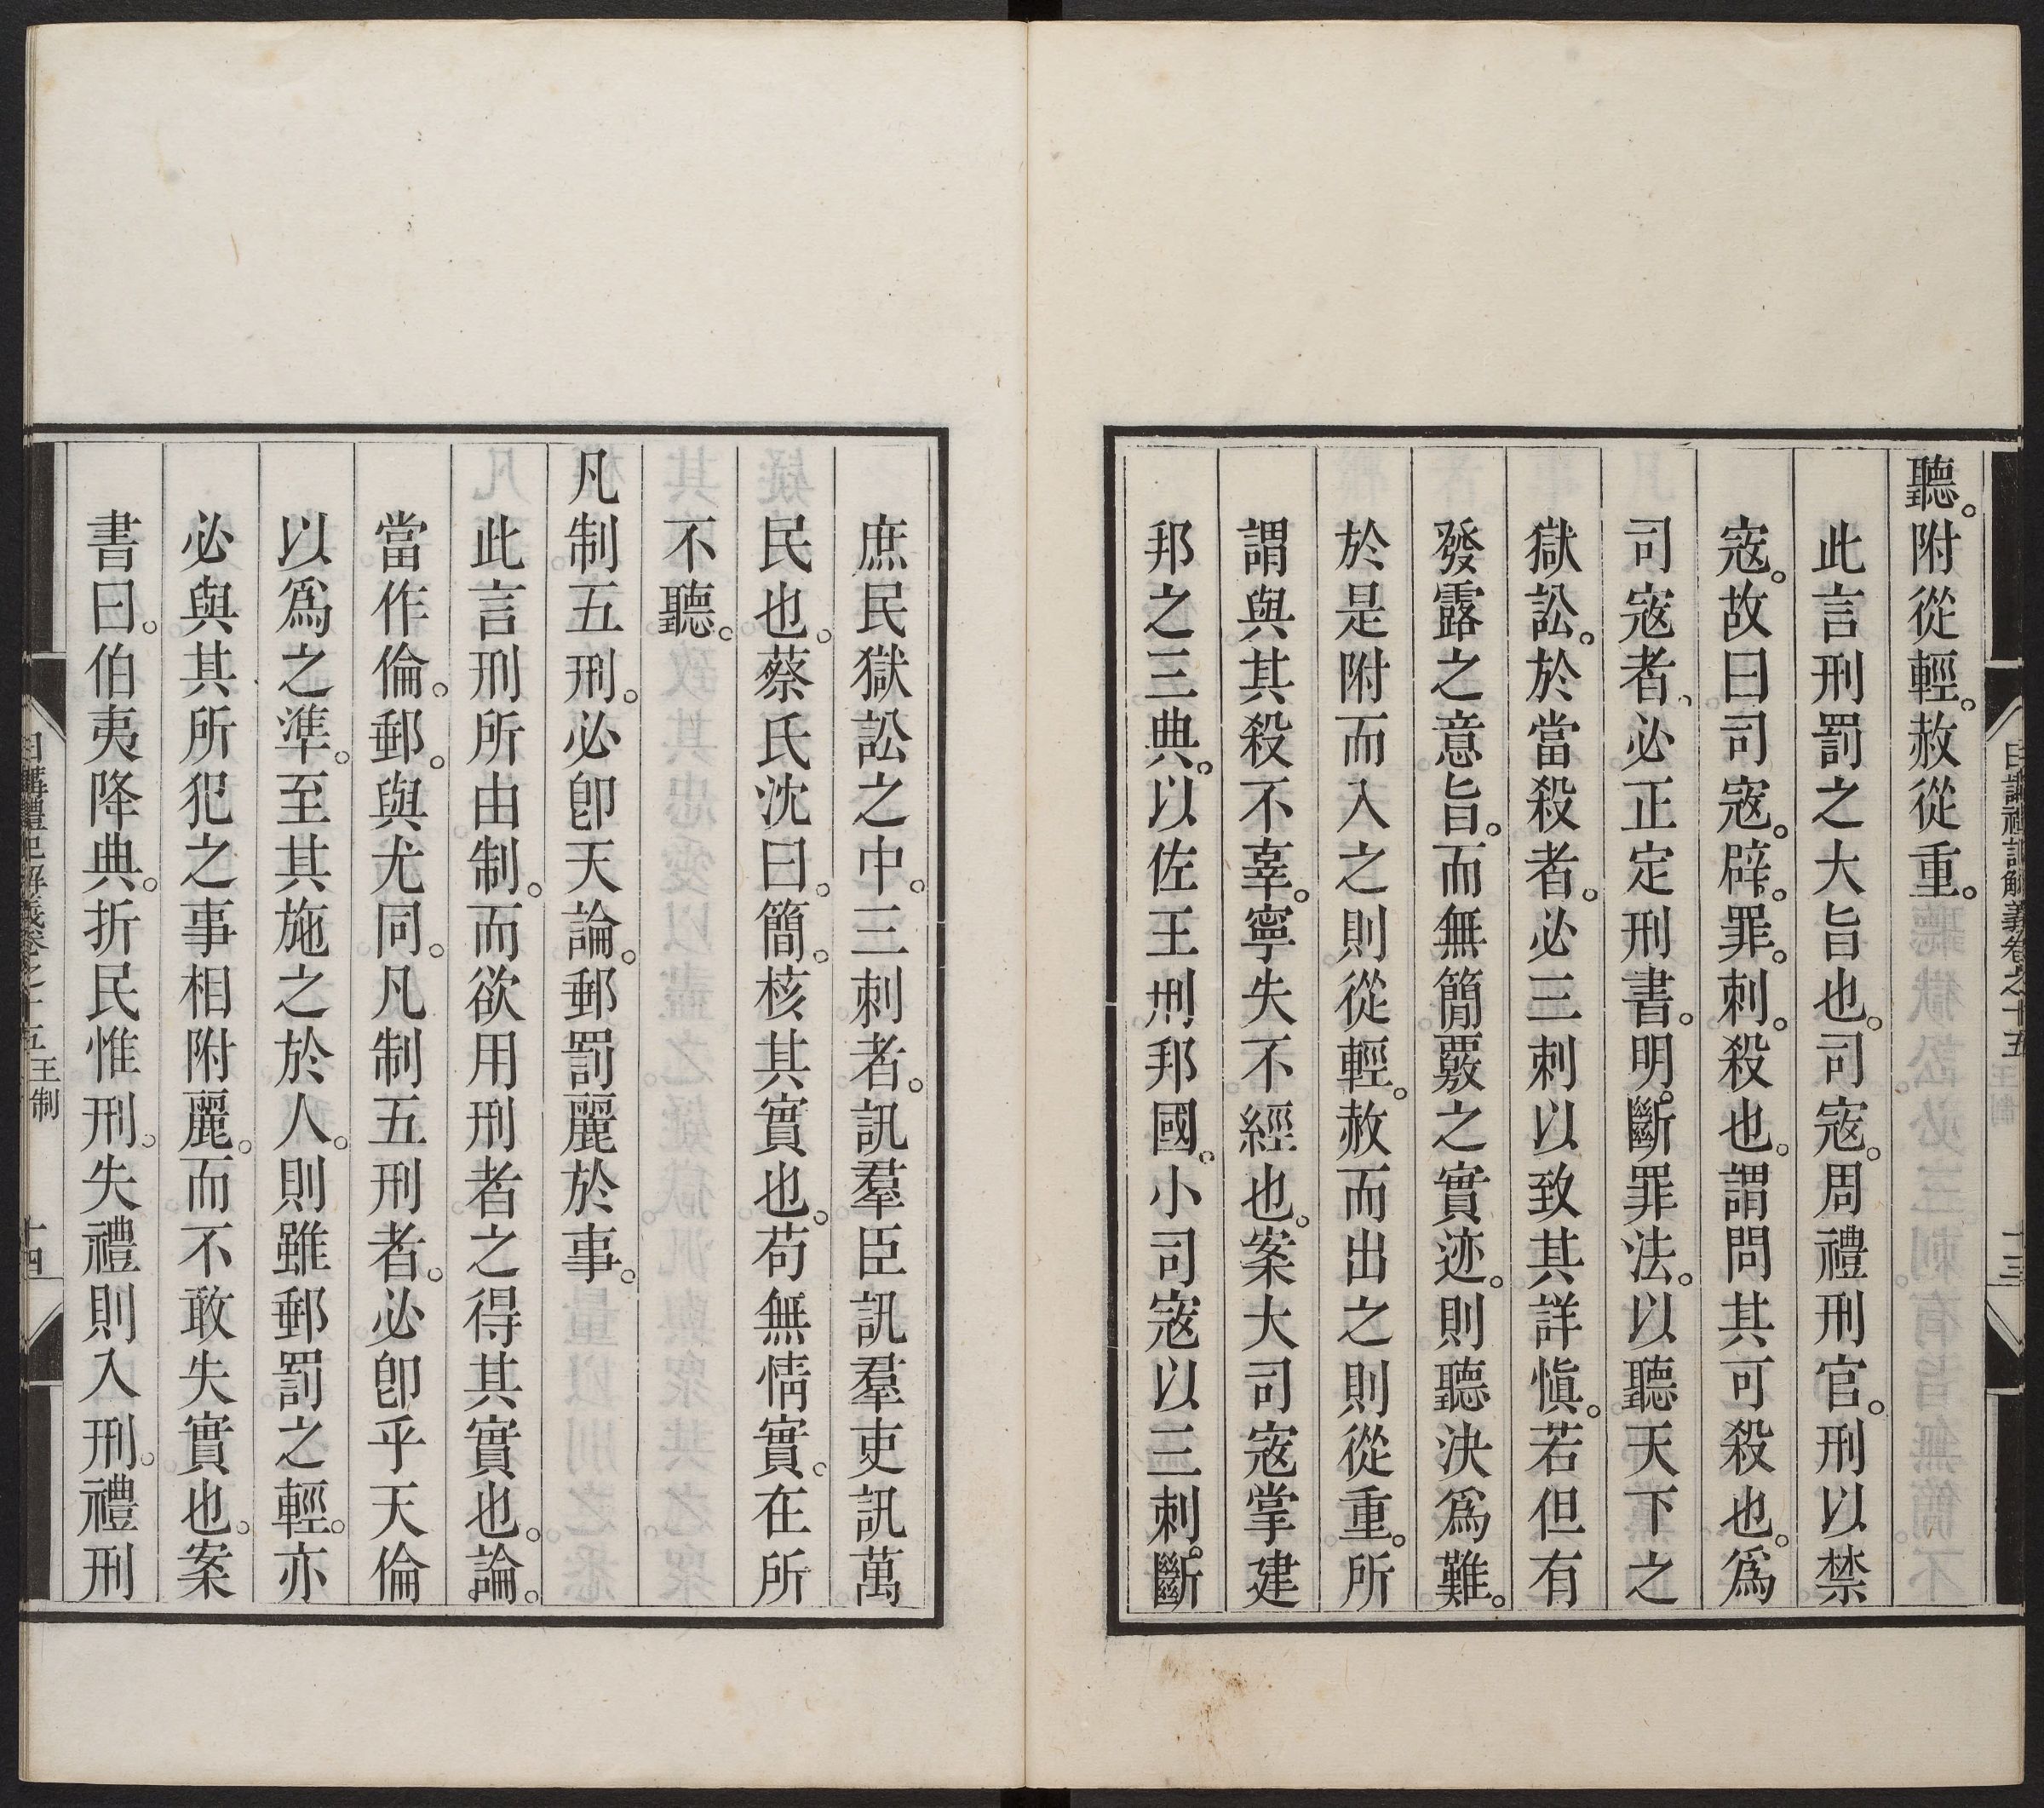 聽。附從輕。赦從重。
此言刑罰之大旨也。司寇。周禮刑官。刑以禁
寇。故曰司寇。辟。罪。刺。殺也。謂問其可殺也。爲
司寇者、必正定刑書。明。斷罪法。以聽天下之
獄訟。於當殺者。必三刺以致其詳愼。若但有
發露之意旨。而無簡覈之實迹。則聽決爲難。
於是附而入之則從輕。赦而出之則從重。所
謂與其殺不辜。寧失不經也。案大司寇掌建
邦之三典。以佐王刑邦國。小司寇以三刺。斷
庶民獄訟之中。三刺者。訊羣臣訊羣吏訊萬
民也。蔡氏沈曰。簡。核其實也。苟無情實。在所
不聽。
凡制五刑。必卽天論。郵罰麗於事。
此言刑所由制。而欲用刑者之得其實也。論。
當作倫。郵。與尤同。凡制五刑者。必卽乎天倫
以爲之準。至其施之於人。則雖郵罰之輕。亦
必與其所犯之事相附麗。而不敢失實也。案
書曰。伯夷降典。折民惟刑。失禮則入刑。禮刑
日講禮記解義卷之十五 王制 十三
日講禮記解義卷之十五 王制 十四